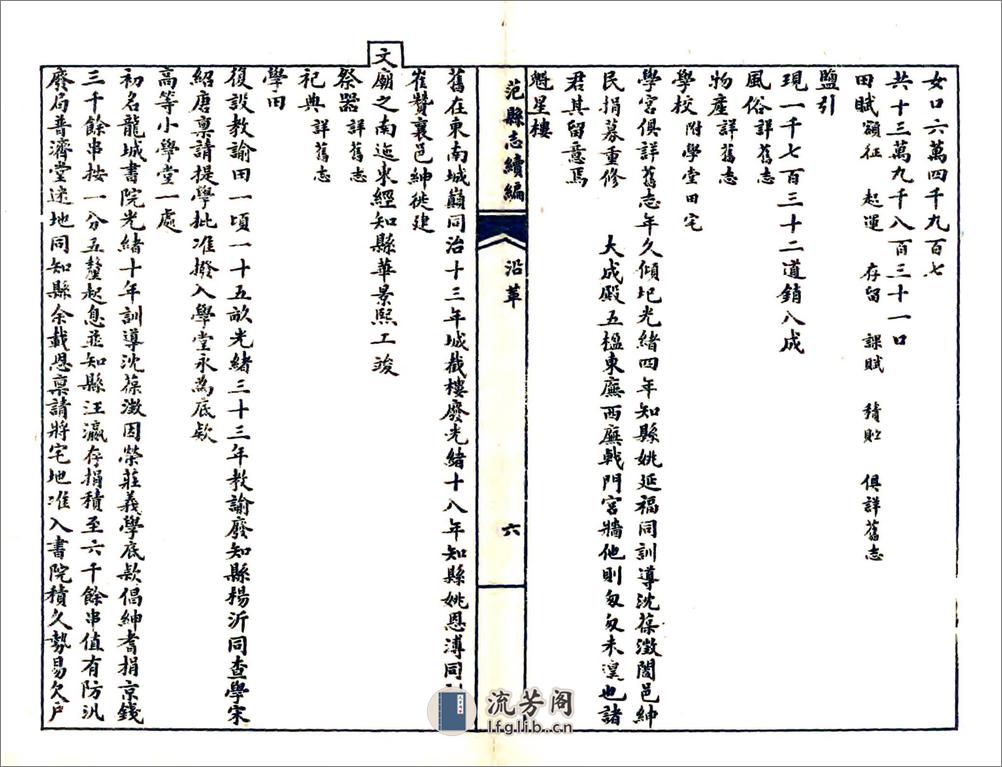 女口六萬四千九百七
共十三萬九千八百三十一口
田賦額征 起運 存留 課賦 積貯 俱詳舊志
鹽引
現一千七百三十二道銷八成
風俗詳舊志
物產詳舊志
學校附學堂田宅
學宮俱詳舊志年久傾圮光緒四年知縣姚延福同訓導沈葆澂闔邑紳
民捐募重修 大成殿五楹東廡西廡戟門宮牆他則匆匆未遑也諸
君其留意焉
魁星樓
范縣志續編 沿革 六
舊在東南城巔同治十三年城截樓廢光緒十八年知縣姚恩溥同
崔贊襄邑紳徙建
文廟之南迤東經知縣華景熙工竣
祭器詳舊志
祀典詳舊志
學田
復設教諭田一頃一十五畝光緒三十三年教諭廢知縣楊沂同查學宋
紹唐稟請提學批准撥入學堂永為底欵
高等小學堂一處
初名龍城書院光緒十年訓導沈葆澂因榮莊義學底欵倡紳耆捐京錢
三千餘串按一分五釐起息並知縣汪瀛存捐積至六千餘串值有防汛
廢局普濟堂遂地同知縣余載恩稟請將宅地准入書院積久勢易欠戶
流芳阁
lfglib.cn